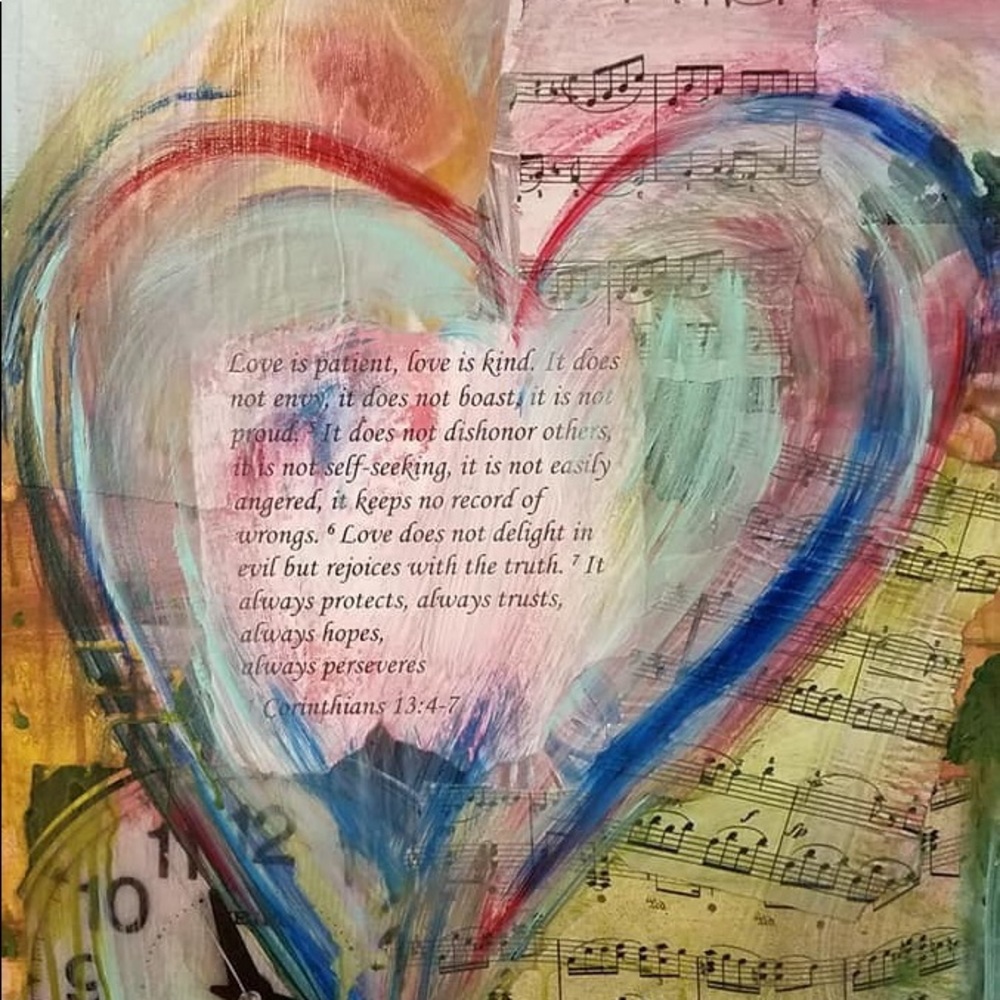 Love is patient, love is kind. It does
not envy, it does not boast, it is not
proud. 5 It does not dishonor others,
it is not self-seeking, it is not easily
angered, it keeps no record of
wrongs. 6 Love does not delight in
evil but rejoices with the truth. 7 It
always protects, always trusts,
always hopes,
always perseveres
Corinthians 13:4-7
f
fp
12
11
10
9